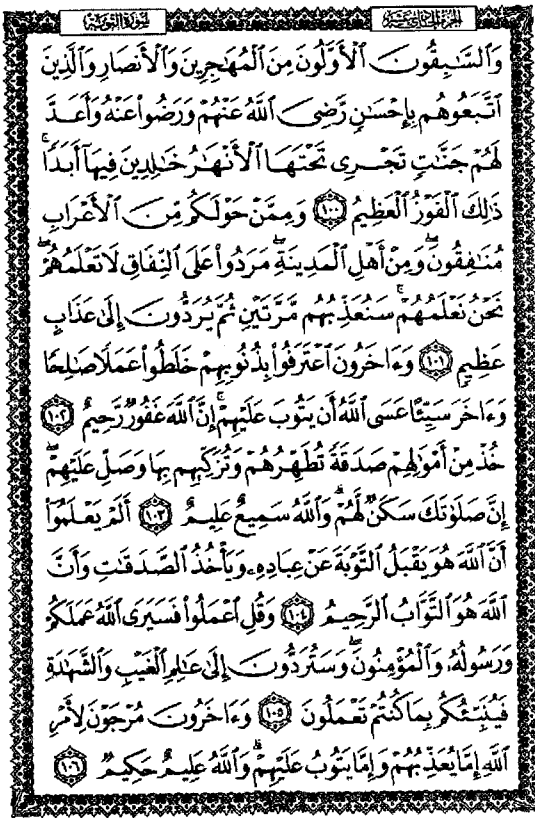 سورة التوبة
الجزء الحادي عشر
وَٱلسَّٰبِقُونَ ٱلْأَوَّلُونَ مِنَ ٱلْمُهَٰجِرِينَ وَٱلْأَنصَارِ وَٱلَّذِينَ
ٱتَّبَعُوهُم بِإِحْسَٰنٍ رَّضِىَ ٱللَّهُ عَنْهُمْ وَرَضُوا۟ عَنْهُ وَأَعَدَّ
لَهُمْ جَنَّٰتٍ تَجْرِى تَحْتَهَا ٱلْأَنْهَٰرُ خَٰلِدِينَ فِيهَآ أَبَدًا ۚ
ذَٰلِكَ ٱلْفَوْزُ ٱلْعَظِيمُ ١٠٠ وَمِمَّنْ حَوْلَكُم مِّنَ ٱلْأَعْرَابِ
مُنَٰفِقُونَ ۖ وَمِنْ أَهْلِ ٱلْمَدِينَةِ ۖ مَرَدُوا۟ عَلَى ٱلنِّفَاقِ لَا تَعْلَمُهُمْ ۖ
نَحْنُ نَعْلَمُهُمْ ۚ سَنُعَذِّبُهُم مَّرَّتَيْنِ ثُمَّ يُرَدُّونَ إِلَىٰ عَذَابٍ
عَظِيمٍ ١٠١ وَءَاخَرُونَ ٱعْتَرَفُوا۟ بِذُنُوبِهِمْ خَلَطُوا۟ عَمَلًا صَٰلِحًا
وَءَاخَرَ سَيِّئًا عَسَى ٱللَّهُ أَن يَتُوبَ عَلَيْهِمْ ۚ إِنَّ ٱللَّهَ غَفُورٌ رَّحِيمٌ ١٠٢
خُذْ مِنْ أَمْوَٰلِهِمْ صَدَقَةً تُطَهِّرُهُمْ وَتُزَكِّيهِم بِهَا وَصَلِّ عَلَيْهِمْ ۖ
إِنَّ صَلَوٰتَكَ سَكَنٌ لَّهُمْ ۗ وَٱللَّهُ سَمِيعٌ عَلِيمٌ ١٠٣ أَلَمْ يَعْلَمُوٓا۟
أَنَّ ٱللَّهَ هُوَ يَقْبَلُ ٱلتَّوْبَةَ عَنْ عِبَادِهِۦ وَيَأْخُذُ ٱلصَّدَقَٰتِ وَأَنَّ
ٱللَّهَ هُوَ ٱلتَّوَّابُ ٱلرَّحِيمُ ١٠٤ وَقُلِ ٱعْمَلُوا۟ فَسَيَرَى ٱللَّهُ عَمَلَكُمْ
وَرَسُولُهُۥ وَٱلْمُؤْمِنُونَ ۖ وَسَتُرَدُّونَ إِلَىٰ عَٰلِمِ ٱلْغَيْبِ وَٱلشَّهَٰدَةِ
فَيُنَبِّئُكُم بِمَا كُنتُمْ تَعْمَلُونَ ١٠٥ وَءَاخَرُونَ مُرْجَوْنَ لِأَمْرِ
ٱللَّهِ إِمَّا يُعَذِّبُهُمْ وَإِمَّا يَتُوبُ عَلَيْهِمْ ۗ وَٱللَّهُ عَلِيمٌ حَكِيمٌ ١٠٦